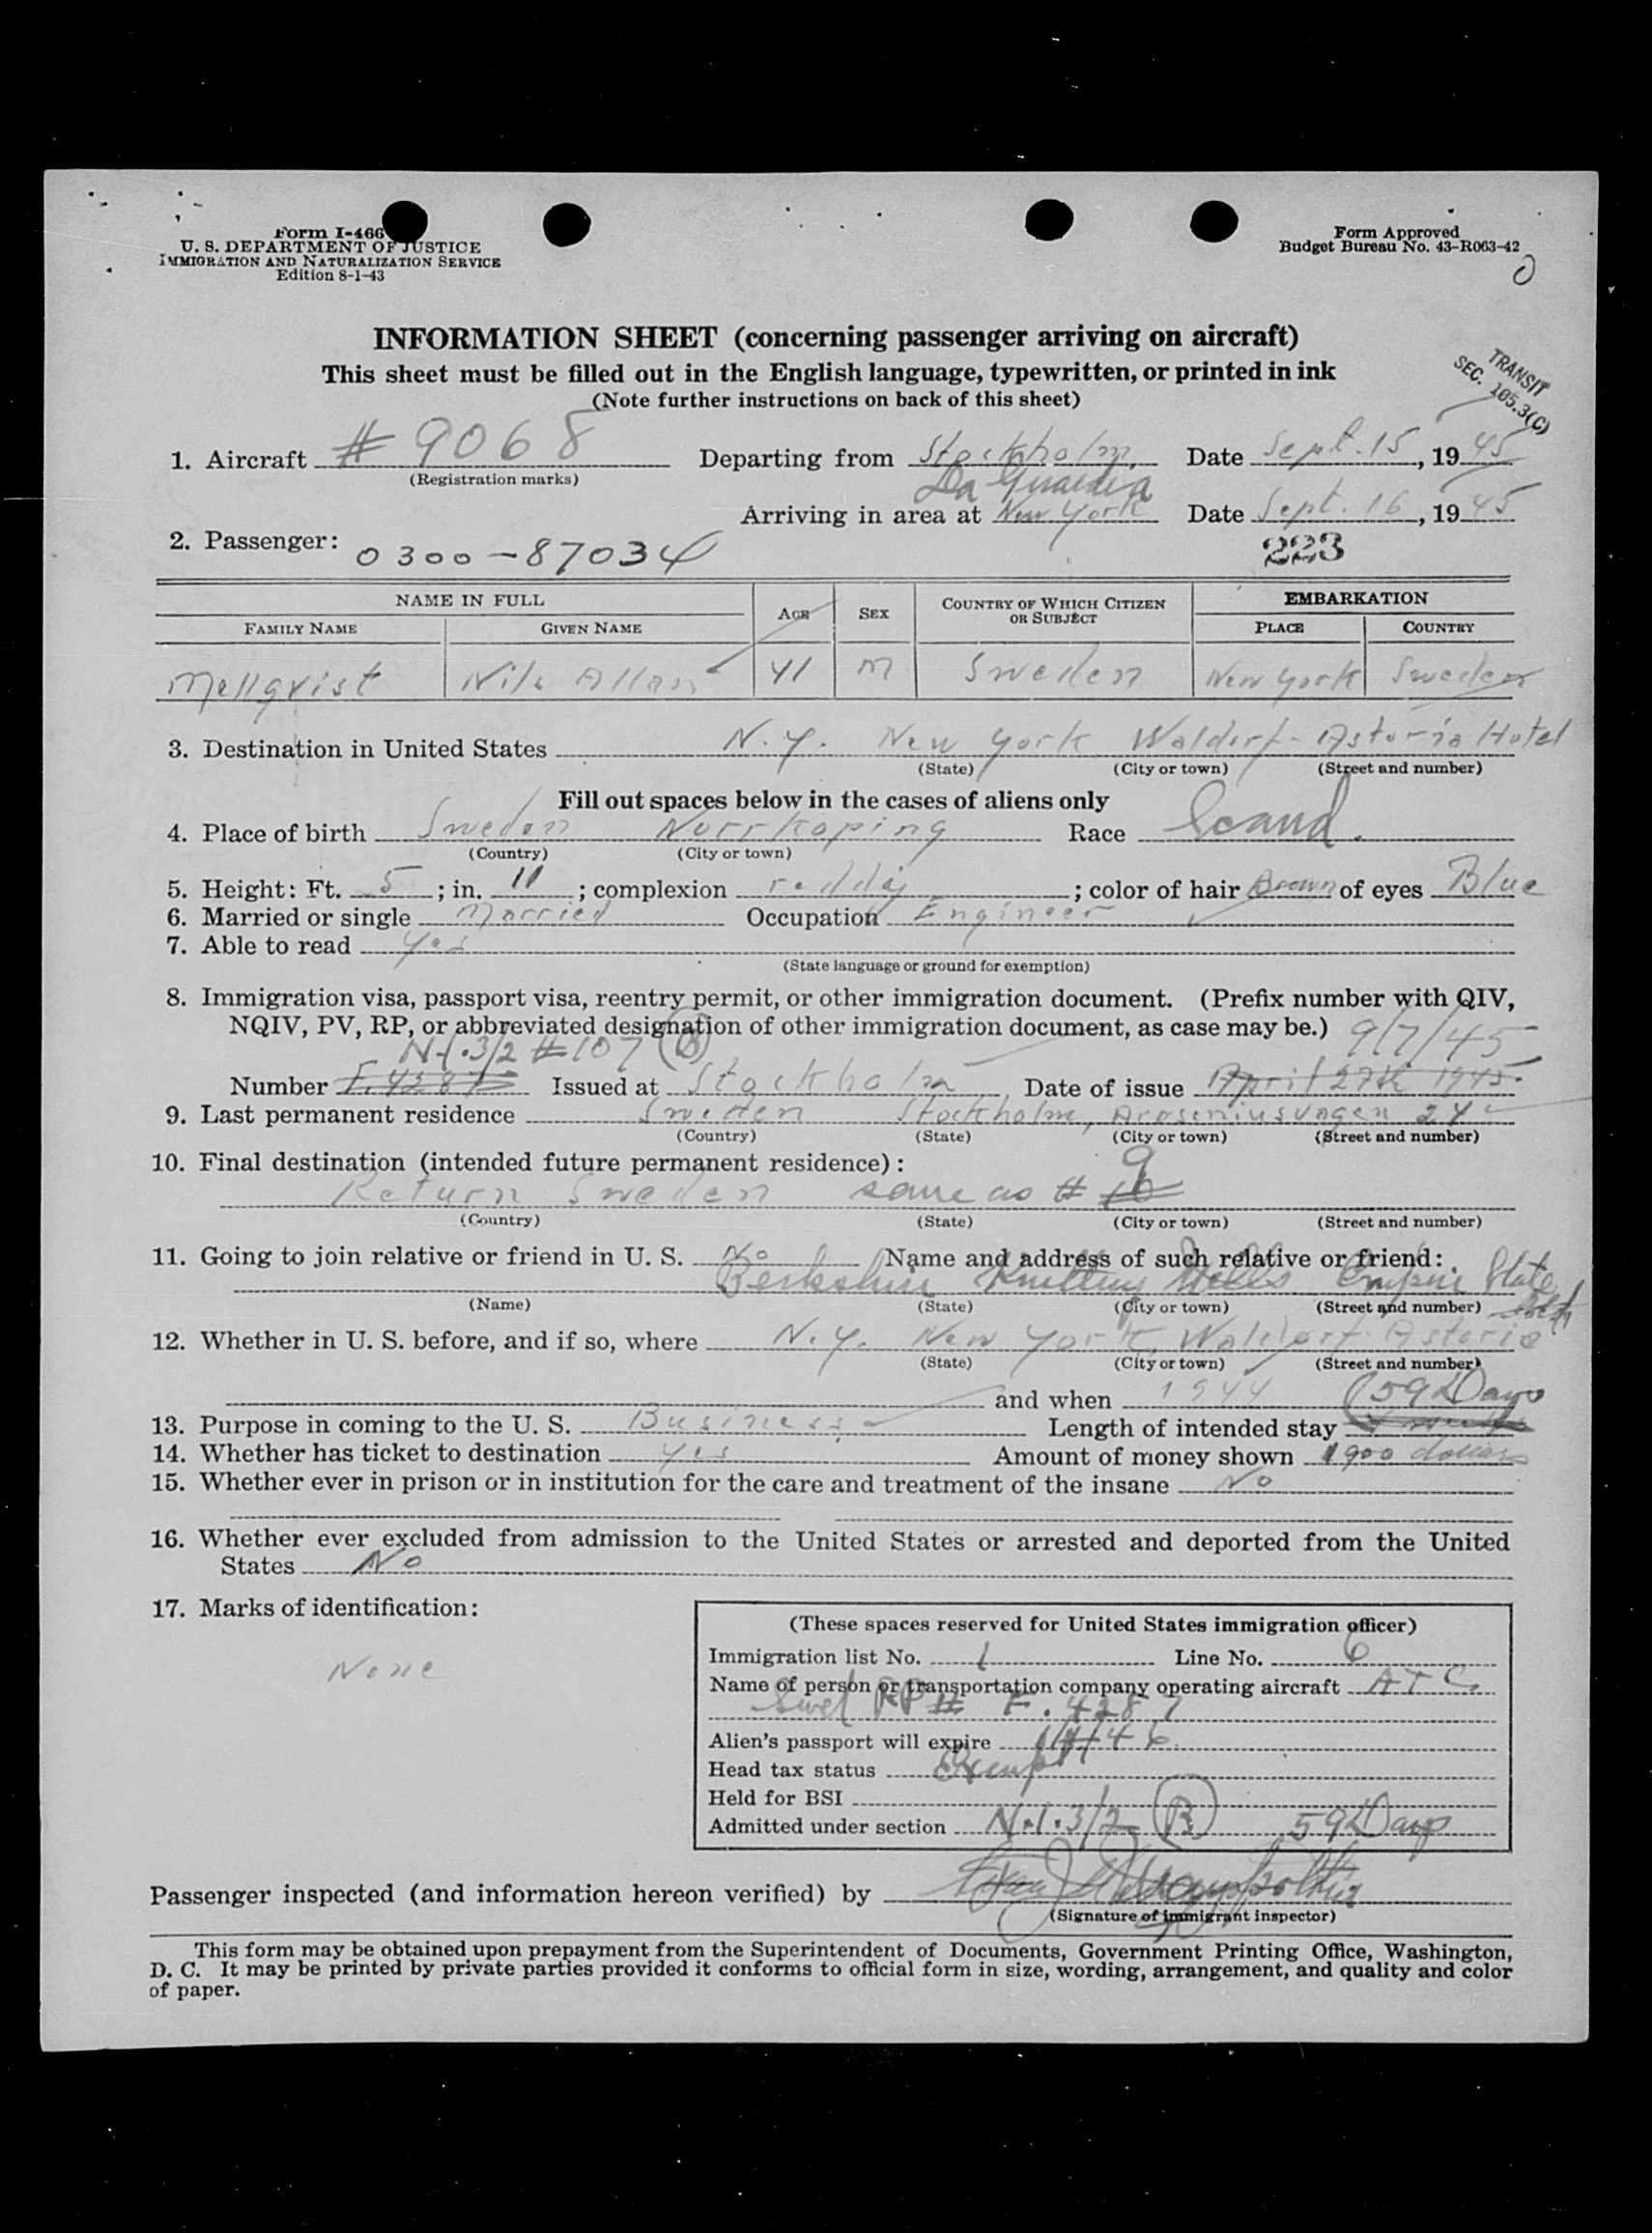 Form I-466
U. S. DEPARTMENT OF JUSTICE
IMMIGRATION AND NATURALIZATION SERVICE
Edition 8-1-43
Form Approved
Budget Bureau No. 43-R063-42
INFORMATION SHEET (concerning passenger arriving on aircraft)
This sheet must be filled out in the English language, typewritten, or printed in ink
(Note further instructions on back of this sheet)
TRANSIT
SEC. 105.3(C)
1. Aircraft # 9068 Departing from Stockholm Date Sept. 15, 1945
(Registration marks)
La Guardia
Arriving in area at New York Date Sept. 16, 1945
2. Passenger: 0300-87034 223
NAME IN FULL AGE SEX COUNTRY OF WHICH CITIZEN OR SUBJECT EMBARKATION
FAMILY NAME GIVEN NAME PLACE COUNTRY
Mellqvist Nils Allan 41 M Sweden New York Sweden
3. Destination in United States N.Y. New York Waldorf-Astoria Hotel
(State) (City or town) (Street and number)
Fill out spaces below in the cases of aliens only
4. Place of birth Sweden Norrkoping Race Scand.
(Country) (City or town)
5. Height: Ft. 5; in. 11; complexion reddy; color of hair Brown of eyes Blue
6. Married or single Married Occupation Engineer
7. Able to read Yes
(State language or ground for exemption)
8. Immigration visa, passport visa, reentry permit, or other immigration document. (Prefix number with QIV,
NQIV, PV, RP, or abbreviated designation of other immigration document, as case may be.) 9/7/45
N-1.3/2 #107 (B)
Number F.4287 Issued at Stockholm Date of issue April 27th 1945.
9. Last permanent residence Sweden Stockholm, Aroseniusvagen 24
(Country) (State) (City or town) (Street and number)
10. Final destination (intended future permanent residence):
Return Sweden same as # 10 9
(Country) (State) (City or town) (Street and number)
11. Going to join relative or friend in U. S. No Name and address of such relative or friend:
Berkshire Knitting Mills Empire State
(Name) (State) (City or town) (Street and number)
12. Whether in U. S. before, and if so, where N.Y. New York, Waldorf-Astoria
(State) (City or town) (Street and number)
and when 1944 (59 Days
13. Purpose in coming to the U. S. Business Length of intended stay
14. Whether has ticket to destination Yes Amount of money shown 1900 dollars
15. Whether ever in prison or in institution for the care and treatment of the insane No
16. Whether ever excluded from admission to the United States or arrested and deported from the United
States No
17. Marks of identification:
None
(These spaces reserved for United States immigration officer)
Immigration list No. 1 Line No. 6
Name of person or transportation company operating aircraft ATC
Swed PP# F. 4287
Alien's passport will expire
Head tax status Exempt
Held for BSI
Admitted under section N.1.3/2 (B) 59 Days
Passenger inspected (and information hereon verified) by
(Signature of immigrant inspector)
This form may be obtained upon prepayment from the Superintendent of Documents, Government Printing Office, Washington,
D. C. It may be printed by private parties provided it conforms to official form in size, wording, arrangement, and quality and color
of paper.